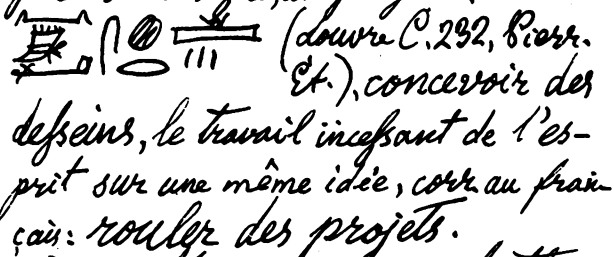 (Louvre C. 232, Pierr.
Ét.), concevoir des
desseins, le travail incessant de l'es-
prit sur une même idée, corr. au fran-
çais: rouler des projets.